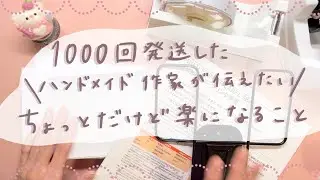 1000回発送した
\ハンドメイド作家が伝えたい/
ちょっとだけど楽になること